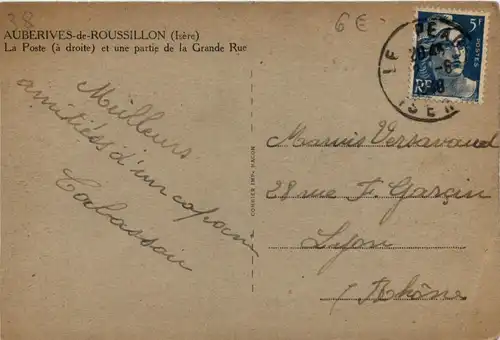 38
6 €
AUBERIVES-de-ROUSSILLON (Isère)
La Poste (à droite) et une partie de la Grande Rue
5F
POSTES
RF
LE PEAGE
ISERE
Meilleurs
amitiées d'un copain
Cabassou
COURRIER IMP. MACON
Marius Versavaud
28 rue F. Garçin
Lyon
Rhône